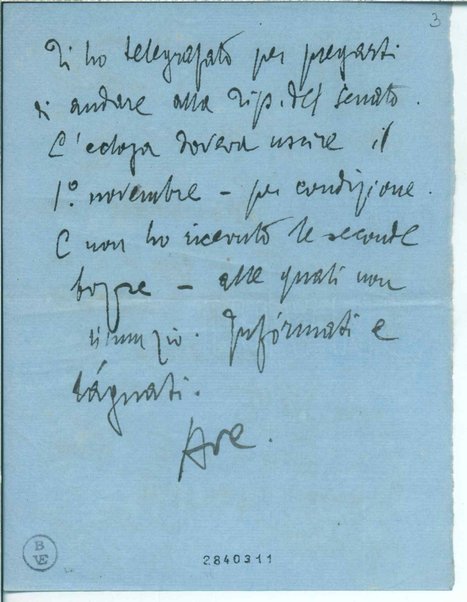 3
Ti ho telegrafato per pregarti
di andare alla Tip. del Senato.
L'ecloga doveva uscire il
1º novembre – per condizione.
E non ho ricevuto le seconde
bozze – alle quali non
rinunzio. Infórmati e
lágnati.
Ave.
BVE
2840311